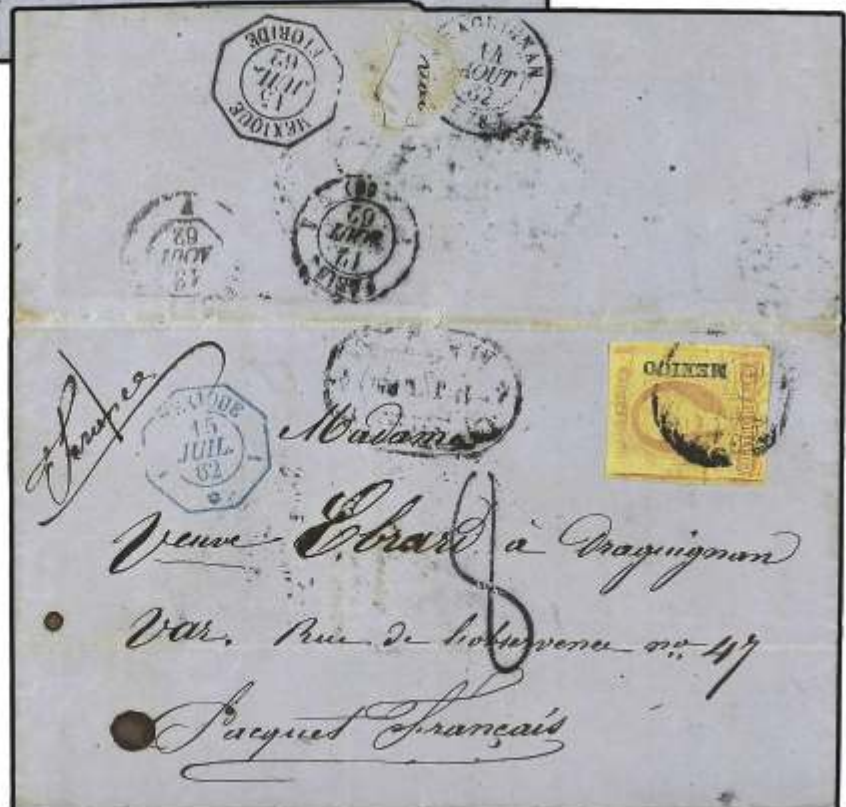 MEXIQUE
15
JUIL.
62
FLORIDE
DRAGUIGNAN
14
AOUT
62
PARIS
12
AOUT
62
(60)
12
AOUT
62
MEXICO
France
MEXIQUE
15
JUIL.
62
Madame
Veuve Ebrard à Draguignan
Var. Rue de l'observance no. 47
Jacquet Français
8